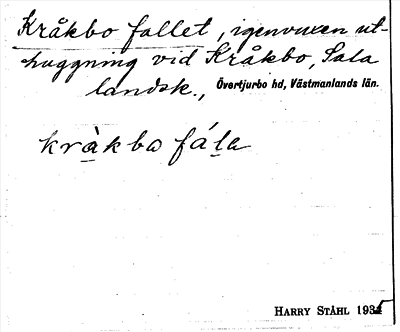 Kråkbo fallet, igenvuxen ut-
huggning vid Kråkbo, Sala
landsk., Övertjurbo hd, Västmanlands län.
kràkbo fála
HARRY STÅHL 1935